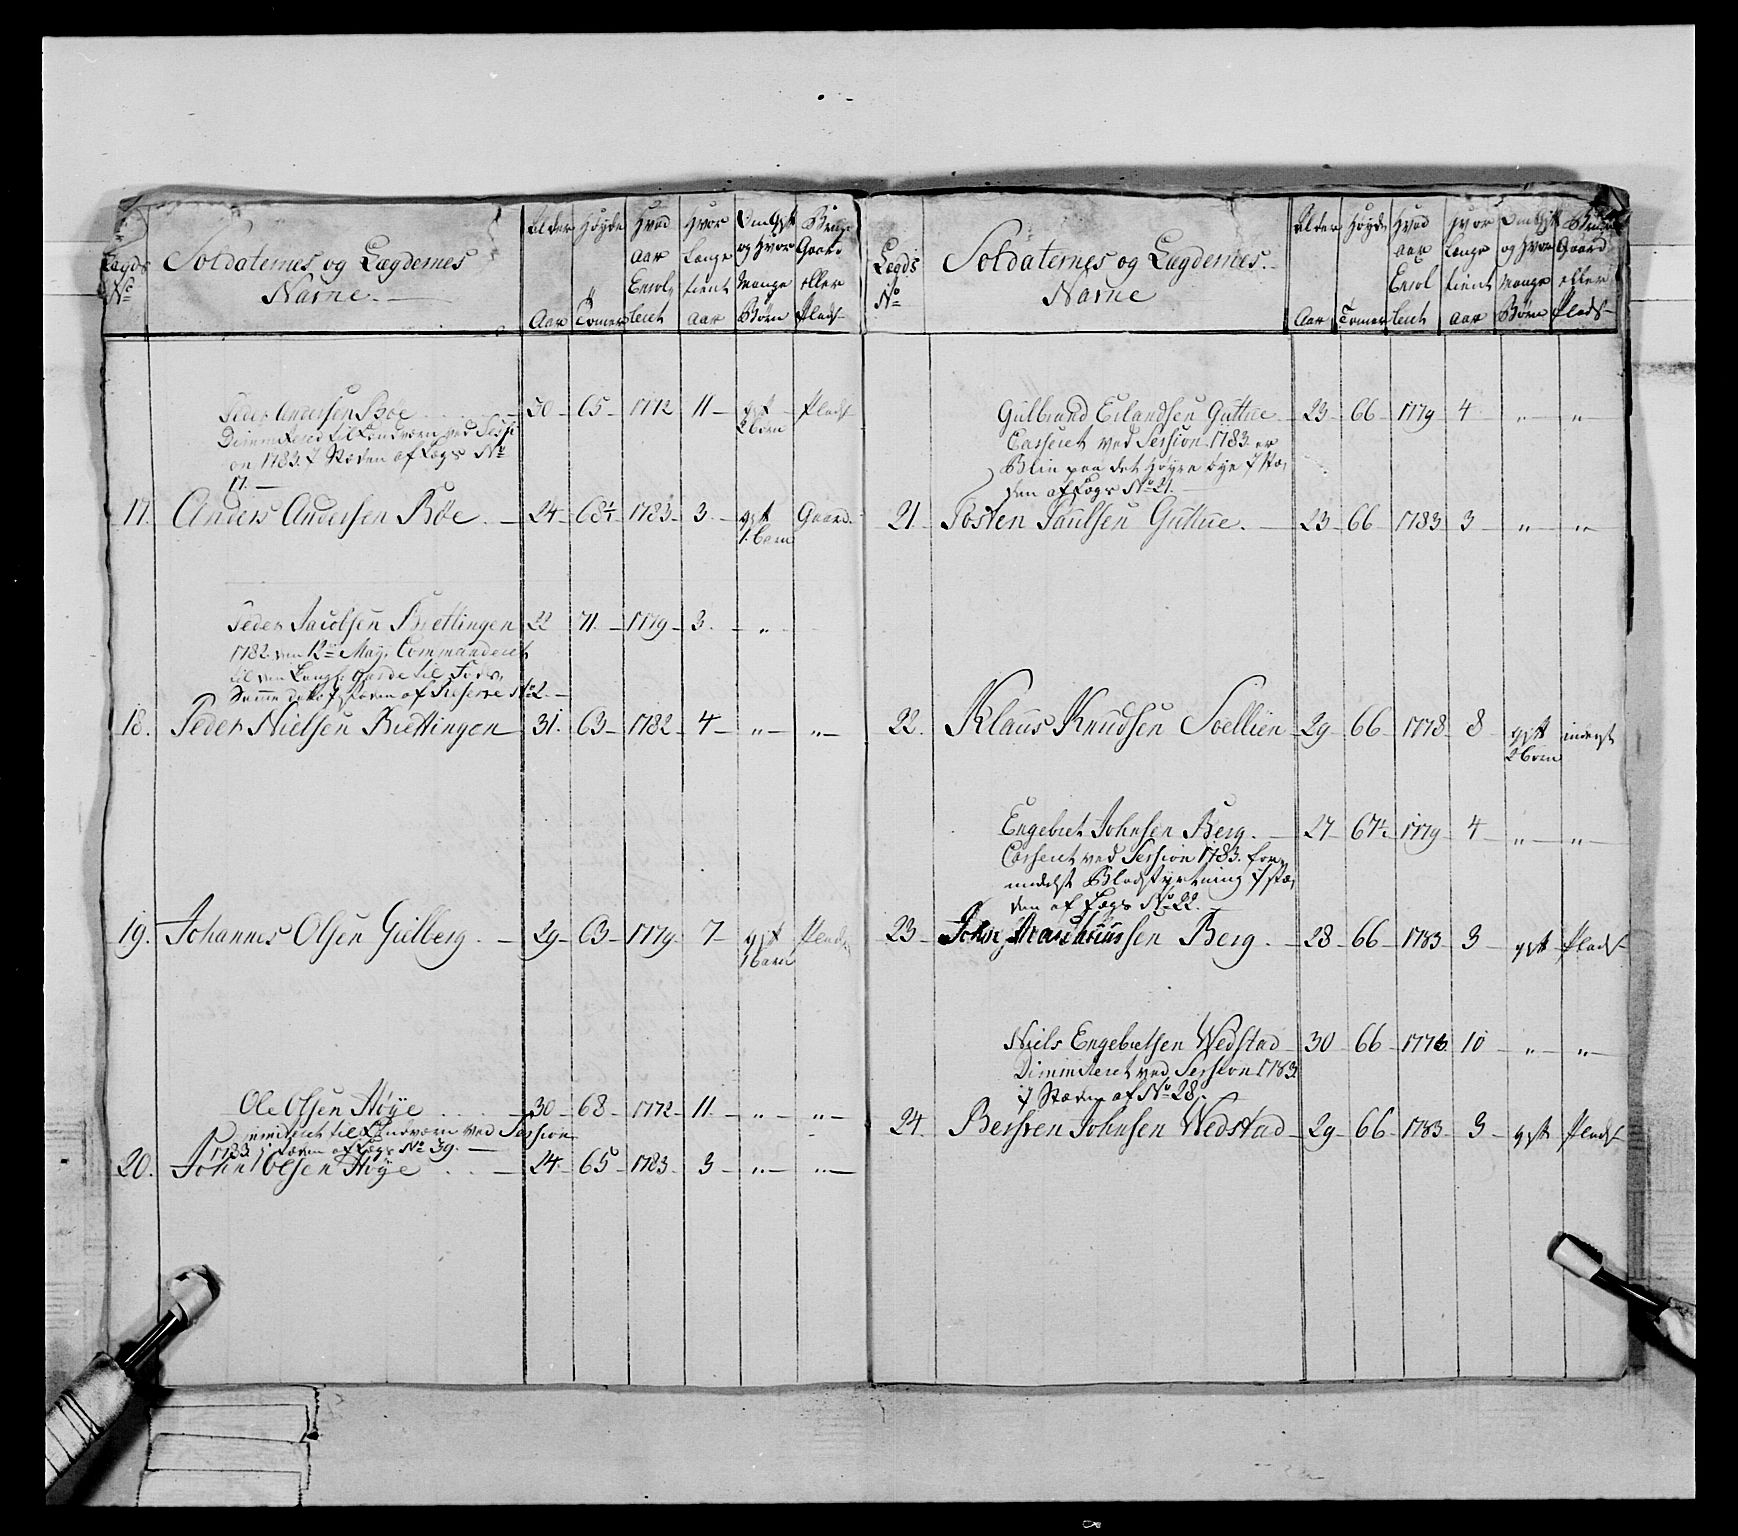 Legds No
Soldaternes og Lægdernes
Navne.
Alder
Aar
Høyde
Tomer
Hvad
Aar
Enrol,
leret
Hvor
Længe
tient
aar
Om gift
og Hvor
Mange
Børn
Bruger
Gaard
eller
Plads
Peder Andersen Bøe 30 65 1772 11 gift 2 børn Plads
Dimmiteret til Landværn ved Sessi
on 1783. I Stæden af Lægs No
17.
17. Anders Andersen Bøe. 24 68½ 1783 3. gift 1 børn Gaard
Peder Jacobsen Brettingen 22 71 1779 3. "
1782 den 12te Maj. Commanderet
til den Kongl. Garde til Fods,
Samme dato I stæden af Reserve No 2.
18. Peder Nielsen Brettingen 31. 63 1782 4 " "
19. Johannes Olsen Gielberg. 29 63 1779 7 gift 1 børn Plads
Ole Olsen Høye 30 68 1772 11. " "
Dimiteret til Landværn ved Session
1783 i Stæden af Lægs No 39.
20. John Olsen Høye 24 65 1783 3 " "
Legds No
Soldaternes og Lægdernes.
Navne
Alder
Aar
Høyde
Tomer
Hvad
aar
Enrol
leret
Hvor
Længe
tient
aar
Om gift
og Hvor
Mange
Børn
Bruger
Gaard
eller
Plads
Gulbrand Erlandsen Guttue 23 66 1779 4 " "
Casseret ved Session 1783. er
Blin paa det Høyre øye I Stæ,
den af Lægs No 21.
21. Tosten Paulsen Guttue. 23 66 1783 3 " "
22. Klaus Knudsen Soellien 29 66 1778 8 gift 2 børn inderst
Engebret Johnsen Berg. 27 67½ 1779 4 " "
Casseret ved Session 1783. for,
medelst Blodstyrtning I Stæ,
den af Lægs No 22.
23 Berg. 28 66 1783 3 gift Plads
Niels Engebretsen Wedstad 30 66 1773 10 " "
Dimmiteret ved Session 1783
I Stæden af No 28.
24. Johnsen Wedstad 29 66 1783 3 gift Plads